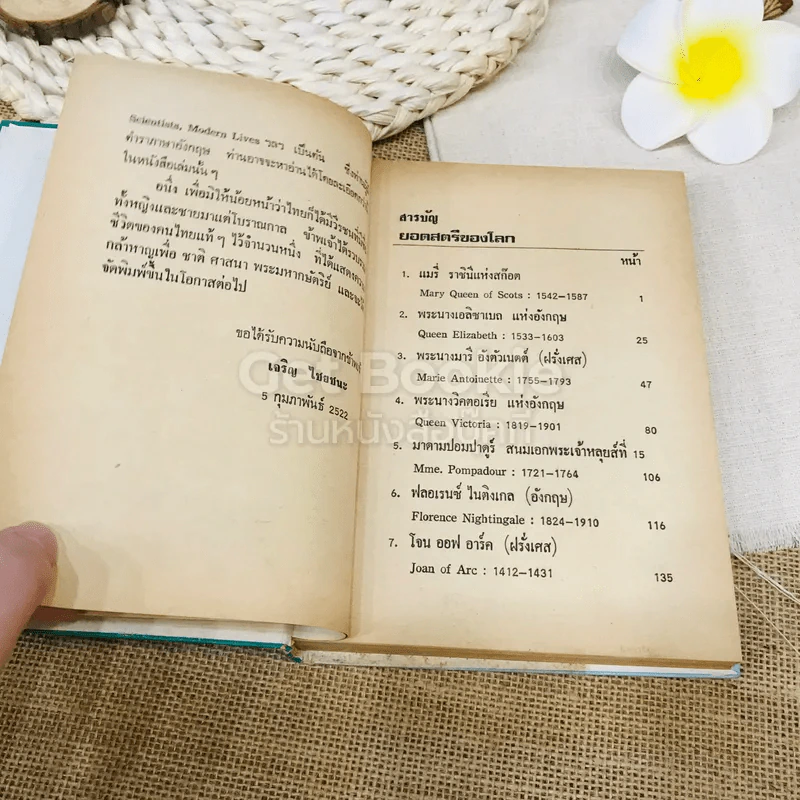 Scientists, Modern Lives ฯลฯ เป็นต้น
ตำราภาษาอังกฤษ ท่านอาจจะหาอ่านได้โดยละเอียด
ในหนังสือเล่มนั้น ๆ
อนึ่ง เพื่อมิให้น้อยหน้าว่าไทยก็ได้มีวีรชน
ทั้งหญิงและชายมาแต่โบราณกาล ข้าพเจ้าได้รวบรวม
ชีวิตของคนไทยแท้ ๆ ไว้จำนวนหนึ่ง ที่ได้แสดงความ
กล้าหาญเพื่อ ชาติ ศาสนา พระมหากษัตริย์ และจะ
จัดพิมพ์ขึ้นในโอกาสต่อไป
ขอได้รับความนับถือจากข้าพเจ้า
เจริญ ไชยชนะ
5 กุมภาพันธ์ 2522
สารบัญ
ยอดสตรีของโลก
หน้า
1. แมรี่ ราชินีแห่งสก๊อต
Mary Queen of Scots : 1542–1587 1
2. พระนางเอลิซาเบถ แห่งอังกฤษ
Queen Elizabeth : 1533–1603 25
3. พระนางมารี อังตัวเนตต์ (ฝรั่งเศส)
Marie Antoinette : 1755–1793 47
4. พระนางวิคตอเรีย แห่งอังกฤษ
Queen Victoria : 1819–1901 80
5. มาดามปอมปาดูร์ สนมเอกพระเจ้าหลุยส์ที่ 15
Mme. Pompadour : 1721–1764 106
6. ฟลอเรนซ์ ไนติงเกล (อังกฤษ)
Florence Nightingale : 1824–1910 116
7. โจน ออฟ อาร์ค (ฝรั่งเศส)
Joan of Arc : 1412–1431 135
Get Bookie
ร้านหนังสือบุ๊คกี้